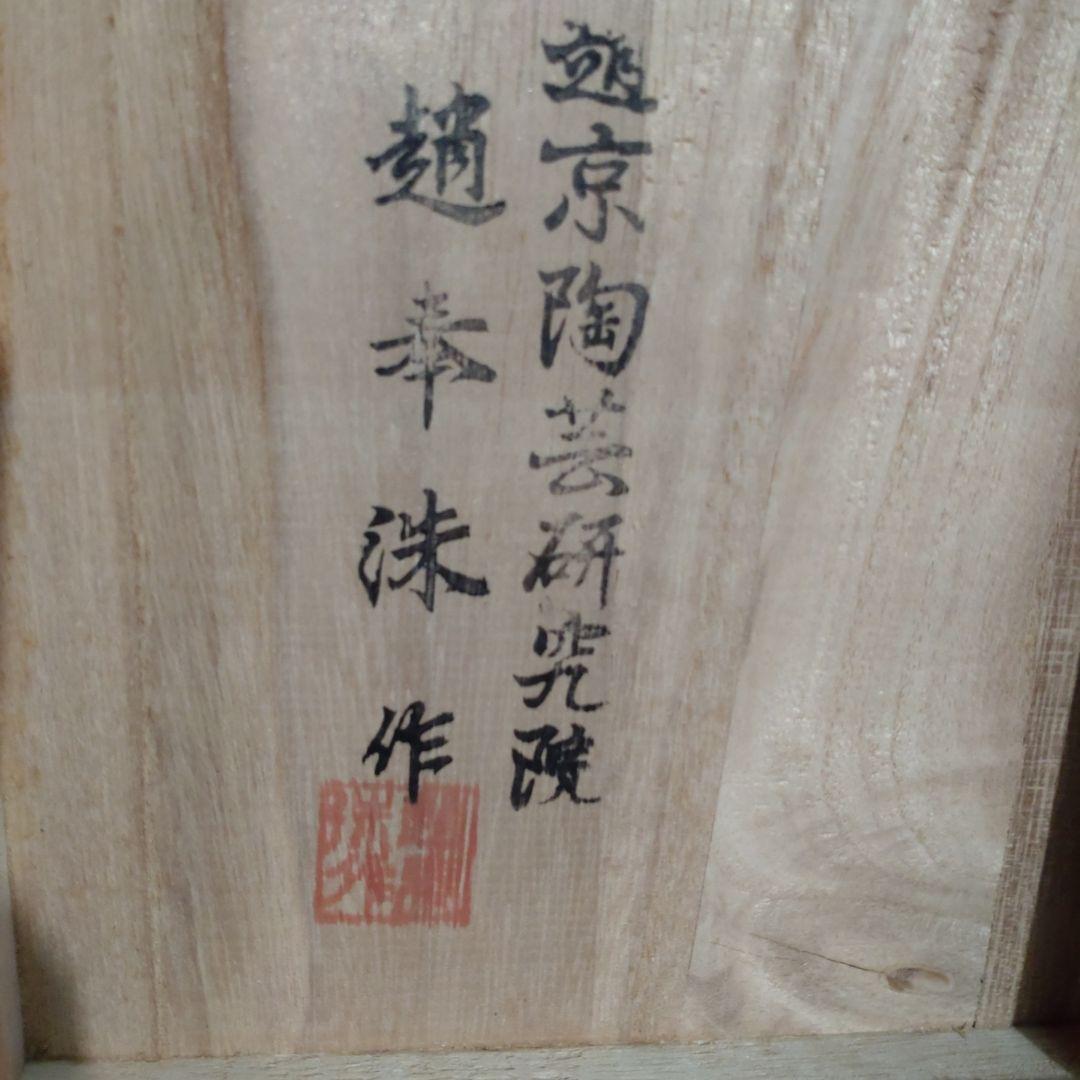 京陶芸研究院
趙奉洙作